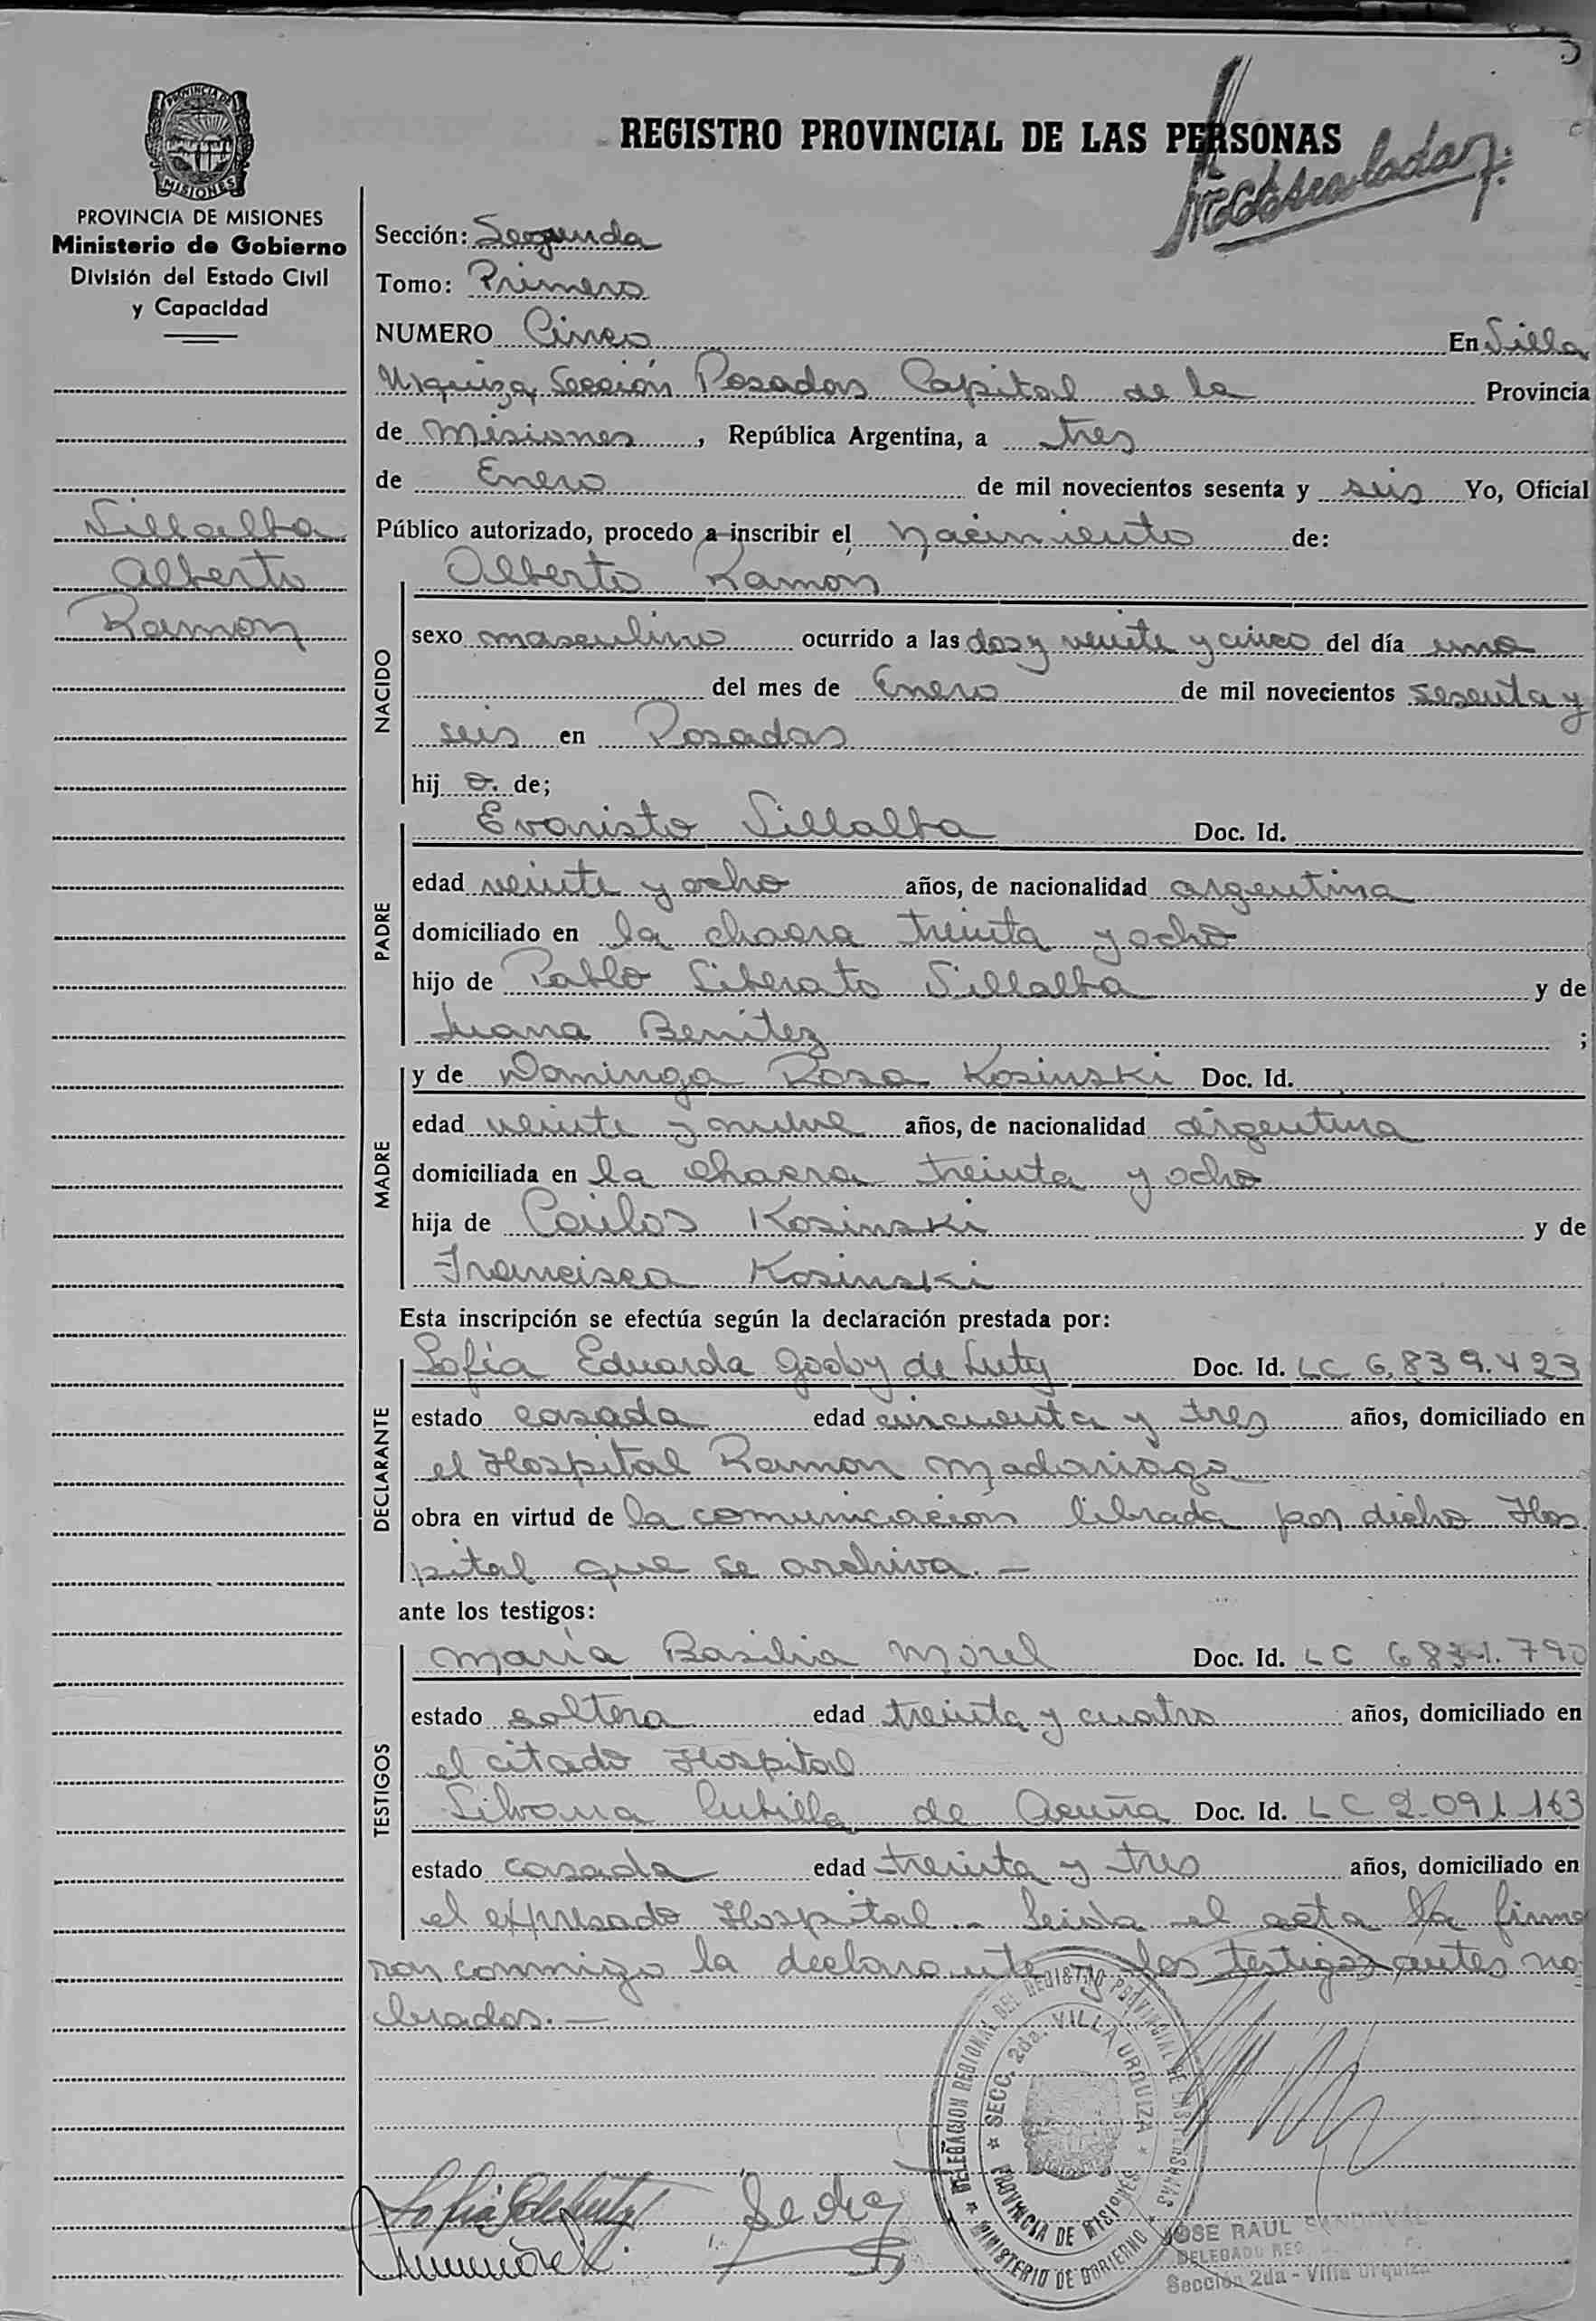 REGISTRO PROVINCIAL DE LAS PERSONAS
PROVINCIA DE MISIONES
Ministerio de Gobierno
División del Estado Civil
y Capacidad
Villalba
Alberto
Ramon
Sección: Segunda
Tomo: Primero
NUMERO Cinco En Villa
Urquiza, Sección Posadas Capital de la Provincia
de Misiones, República Argentina, a tres
de Enero de mil novecientos sesenta y seis Yo, Oficial
Público autorizado, procedo a inscribir el nacimiento de:
NACIDO
Alberto Ramon
sexo masculino ocurrido a las dos y veinte y cinco del día uno
del mes de Enero de mil novecientos sesenta y
seis en Posadas
hij o. de;
PADRE
Evaristo Villalba Doc. Id.
edad veinte y ocho años, de nacionalidad argentina
domiciliado en la chacra treinta y ocho
hijo de Pablo Liberato Villalba y de
Juana Benítez ;
MADRE
y de Dominga Rosa Kosinski Doc. Id.
edad veinte y nueve años, de nacionalidad argentina
domiciliada en la chacra treinta y ocho
hija de Carlos Kosinski y de
Francisca Kosinski
Esta inscripción se efectúa según la declaración prestada por:
DECLARANTE
Sofía Eduarda Godoy de Luty Doc. Id. LC 6.839.423
estado casada edad cincuenta y tres años, domiciliado en
el Hospital Ramon Madariaga
obra en virtud de la comunicación librada por dicho Hos
pital que se archiva. —
ante los testigos:
TESTIGOS
María Basilia Morel Doc. Id. LC 6831.790
estado soltera edad treinta y cuatro años, domiciliado en
el citado Hospital
Silvana de Acuña Doc. Id. LC 2.091.163
estado casada edad treinta y tres años, domiciliado en
el expresado Hospital. — Leida el acta la firma
ron conmigo la declarante los testigos antes no
brados. —
DELEGACION REGIONAL DEL REGISTRO PROVINCIAL DE LAS PERSONAS
MINISTERIO DE GOBIERNO
SECC. 2da. VILLA URQUIZA
PROVINCIA DE MISIONES
JOSE RAUL SANDOVAL
DELEGADO REG.
Sección 2da - Villa Urquiza